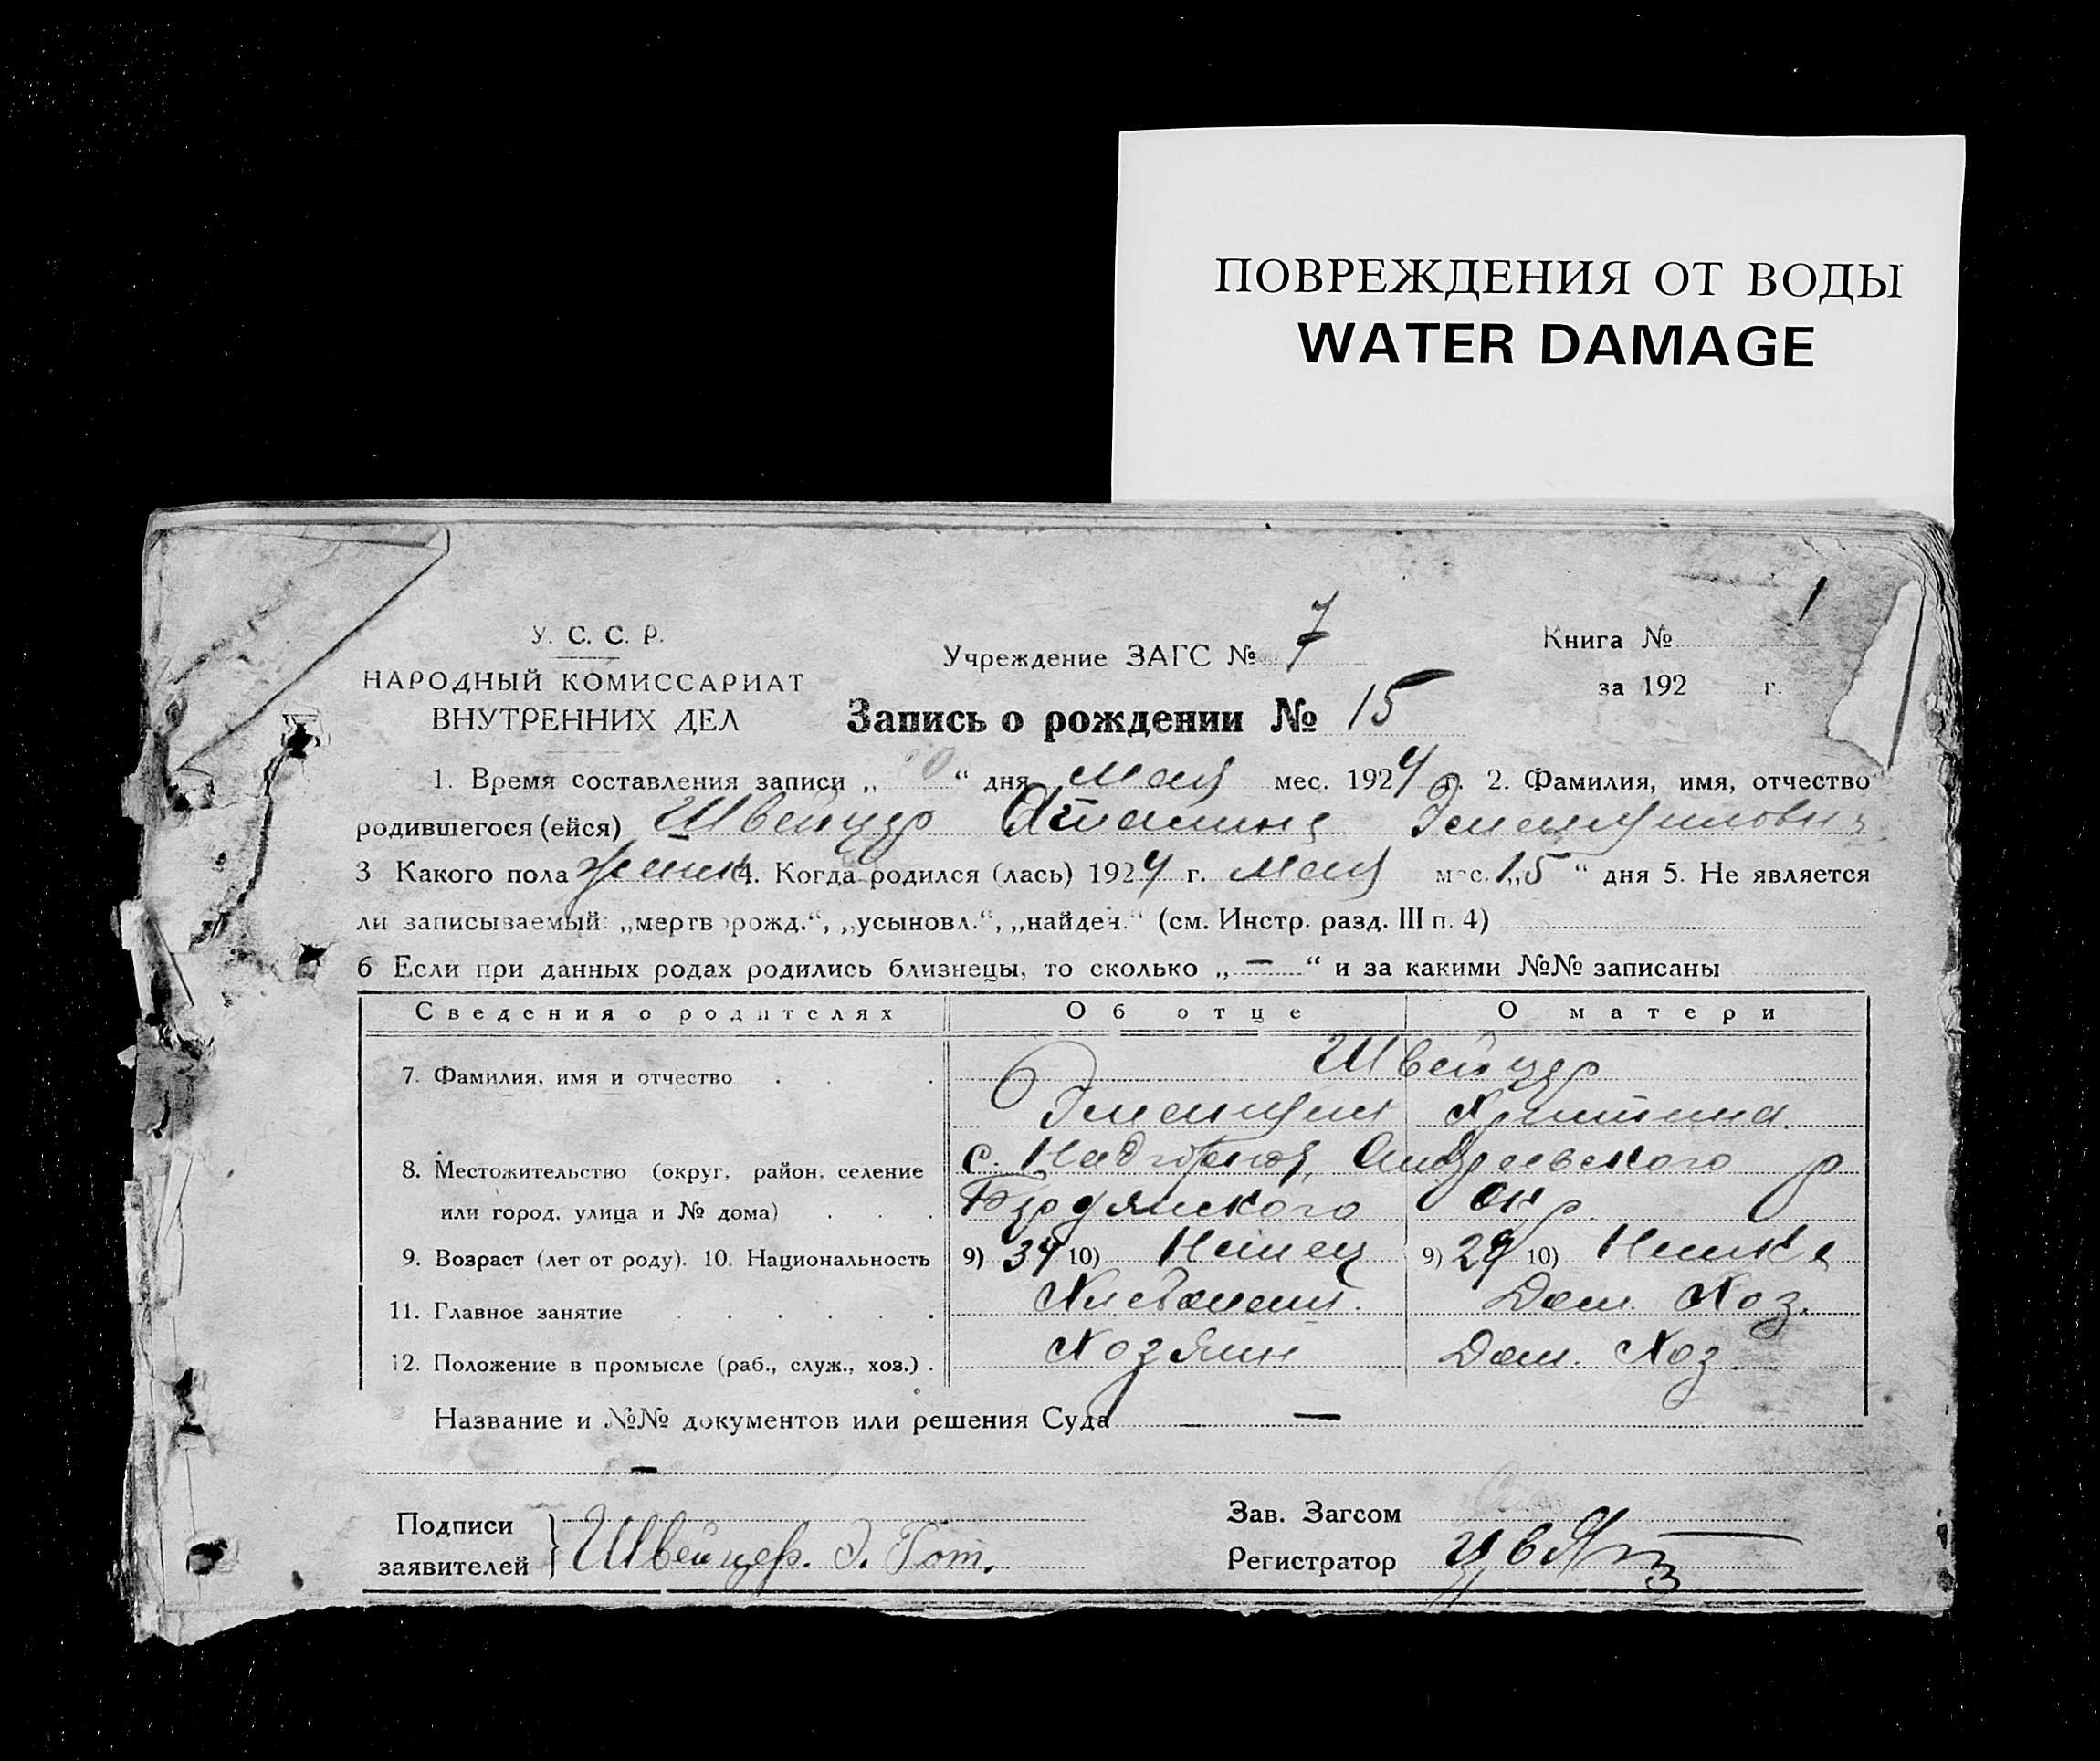 ПОВРЕЖДЕНИЯ ОТ ВОДЫ
WATER DAMAGE
У. С. С. Р.
НАРОДНЫЙ КОМИССАРИАТ
ВНУТРЕННИХ ДЕЛ
Учреждение ЗАГС № 7
Книга № 1
за 192 г.
Запись о рождении № 15
1. Время составления записи „ “ дня Мая мес. 1924 г. 2. Фамилия, имя, отчество
родившегося (ейся) Швейцер
3 Какого пола 4. Когда родился (лась) 1924 г. Мая мес. „15“ дня 5. Не является
ли записываемый: „мертворожд.“, „усыновл.“, „найден.“ (см. Инстр. разд. III п. 4)
6 Если при данных родах родились близнецы, то сколько „—“ и за какими №№ записаны
Сведения о родителях Об отце О матери
7. Фамилия, имя и отчество Швейцер
Эмануил Христина.
8. Местожительство (округ, район, селение с. Андреевского р
или город, улица и № дома) Бердянского окр.
9. Возраст (лет от роду). 10. Национальность 9) 34 10) Немец 9) 29 10) Немка
11. Главное занятие Хлебопаш. Дом. Хоз.
12. Положение в промысле (раб., служ., хоз.) Хозяин Дом. Хоз.
Название и №№ документов или решения Суда — —
—
Подписи заявителей } Швейцер. Э. Гот.
Зав. Загсом
Регистратор